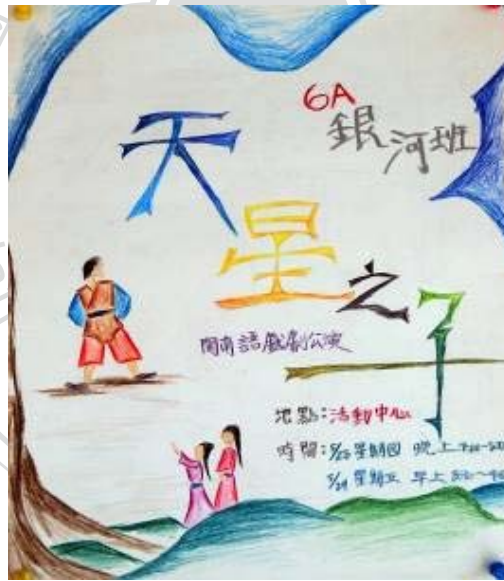 6A
銀河班
天星之子
閩南語戲劇公演
地點:活動中心
時間: 星期四 晚上
星期五 早上